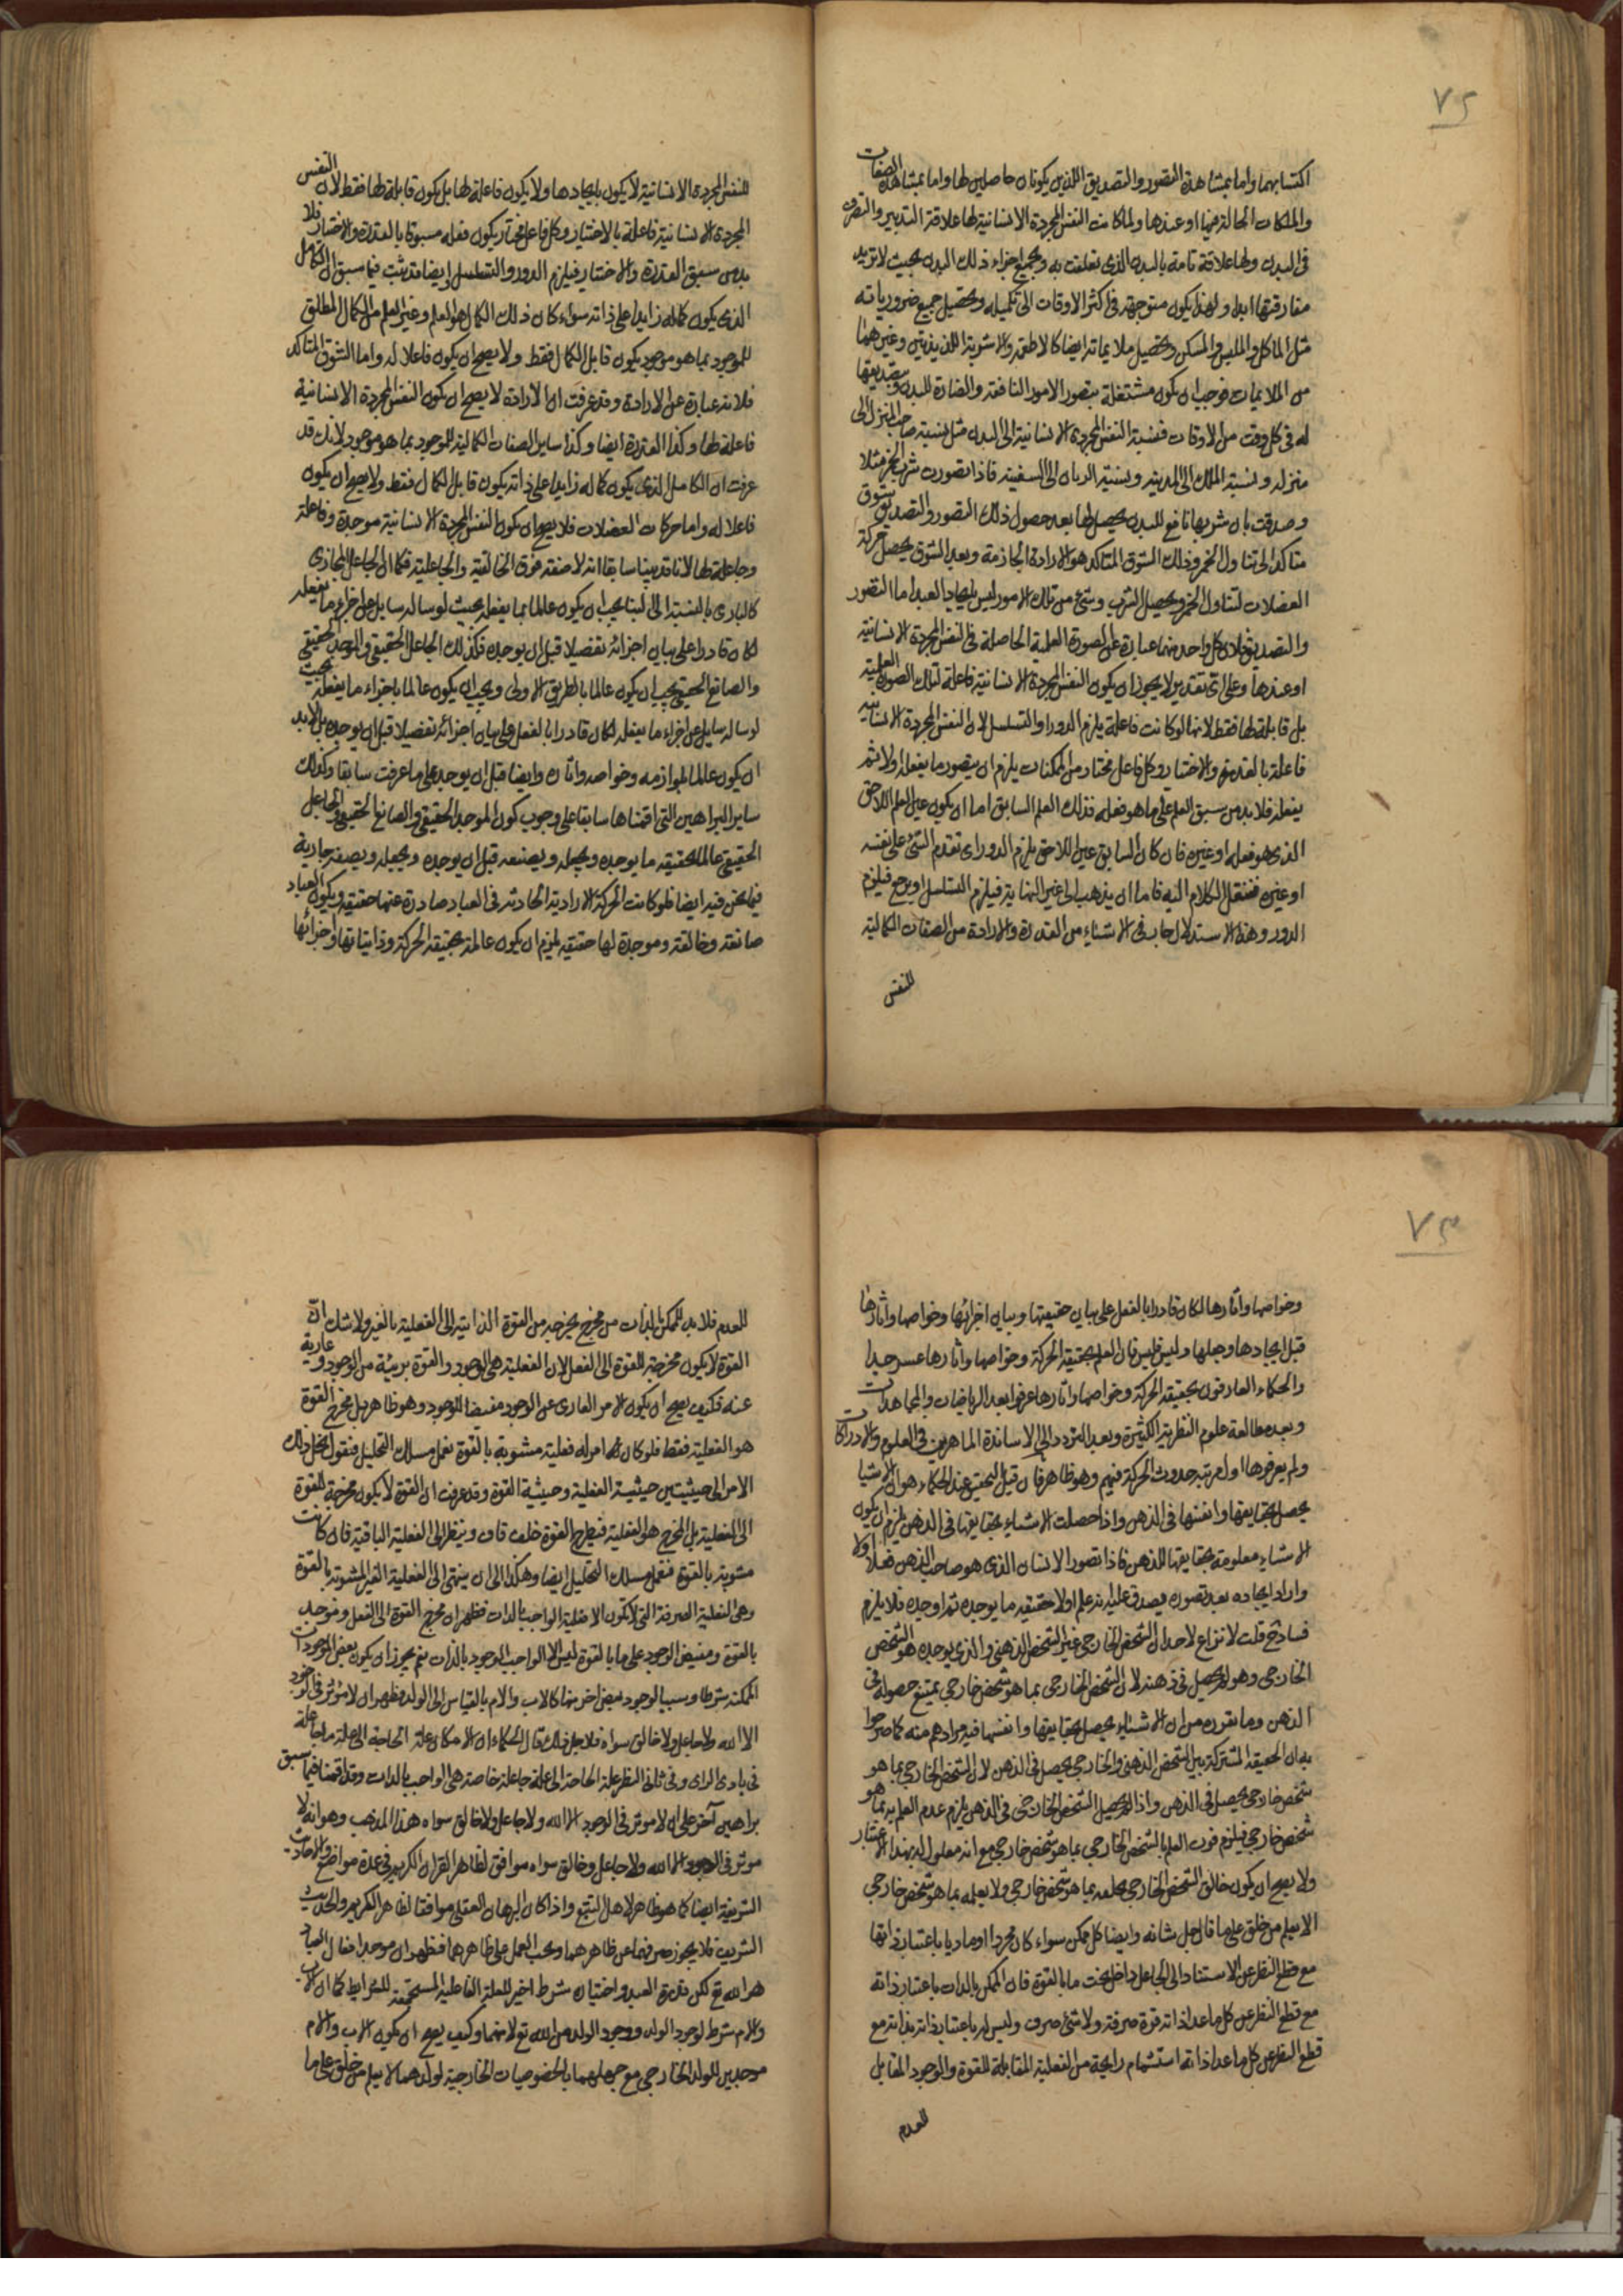 ٧٢
اكتسابهما واما بمشاهدة التصور والتصديق اللذين يكونان حاصلين لها واما بمشاهدة الصفات
والملكات الحالة فيها او عندها ولما كانت النفس المجردة الانسانية لها علاقة التدبير والتصرف
فى البدن ولها علاقة تامة بالبدن الذى تعلقت به وبجميع اجزاء ذلك البدن بحيث لا تريد
مفارقتها ابدا ولهذا يكون متوجهة فى اكثر الاوقات الى تكميله وتحصيل جميع ضرورياته
مثل الماكل والملبس والمسكن وتحصيل ملايماته ايضا كالاطعمة والاشربة اللذيذتين وغيرهما
من الملايمات فوجب ان يكون مشتغلة بتصور الامور النافعة والضارة للبدن وبتصديقها
له فى كل وقت من الاوقات فنسبة النفس المجردة الانسانية الى البدن مثل نسبة صاحب المنزل الى
منزله ونسبة الملك الى المدينة ونسبة الربان الى السفينة فاذا تصورت شرب الخمر مثلا
وصدقت بان شربها نافع للبدن يحصل لها بعد حصول ذلك التصور والتصديق شوق
متاكد الى تناول الخمر وذلك الشوق المتاكد هو الارادة الجازمة وبعد الشوق يحصل حركة
العضلات لتناول الخمر وتحصيل الشرب وشىء من تلك الامور ليس بايجاد العبد اما التصور
والتصديق فلان كل واحد منهما عبارة عن الصورة العلمية الحاصلة فى النفس المجردة الانسانية
او عندها وعلى اى تقدير لا يجوز ان يكون النفس المجردة الانسانية فاعلة لتلك الصورة العلمية
بل قابلة لها فقط لانها لو كانت فاعلة يلزم الدور او التسلسل لان النفس المجردة الانسانية
فاعلة بالقدرة والاختيار وكل فاعل مختار من الممكنات يلزم ان يتصور ما يفعله اولا ثم
يفعله فلا بد من سبق العلم على ما هو فعله فذلك العلم السابق اما ان يكون عين العلم اللاحق
الذى هو فعله او غيره فان كان السابق عين اللاحق يلزم الدور اى تقدم الشىء على نفسه
او غيره فننقل الكلام اليه فاما ان يذهب الى غير النهاية فيلزم التسلسل او يرجع فيلزم
الدور وهذا الاستدلال جار فى الاشياء من القدرة والارادة من الصفات الكمالية
للنفس
للنفس المجردة الانسانية لا يكون بايجادها ولا يكون فاعلة لها بل يكون قابلة لها فقط لان النفس
المجردة الانسانية فاعلة بالاختيار وكل فاعل مختار يكون فعله مسبوقا بالقدرة والاختيار فلا
بد من سبق القدرة والاختيار فيلزم الدور والتسلسل وايضا قد ثبت فيما سبق ان الكامل
الذى يكون كماله زايدا على ذاته سواء كان ذلك الكمال هو العلم وغير العلم من الكمال المطلق
للموجود بما هو موجود يكون قابل الكمال فقط ولا يصح ان يكون فاعلا له واما الشوق المتاكد
فلانه عبارة عن الارادة وقد عرفت ان الارادة لا يصح ان يكون النفس المجردة الانسانية
فاعلة لها وكذا القدرة ايضا وكذا ساير الصفات الكمالية للموجود بما هو موجود لانك قد
عرفت ان الكامل الذى يكون كماله زايدا على ذاته يكون قابل الكمال فقط ولا يصح ان يكون
فاعلا له واما حركات العضلات فلا يصح ان يكون النفس المجردة الانسانية موجدة وفاعلة
وجاعلة لها لانا قد بينا سابقا انه لا صفة فوق الخالقية والجاعلية فكما ان الجاعل المجازى
كالبارى بالنسبة الى البنا يجب ان يكون عالما بما يفعله بحيث لو ساله سايل عن اجزاء ما يفعله
لكان قادرا على بيان اجزائه تفصيلا قبل ان يوجده فكذلك الجاعل الحقيقى والموجد الحقيقى
والصانع الحقيقى يجب ان يكون عالما بالطريق الاولى ويجب ان يكون عالما باجزاء ما يفعله بحيث
لو ساله سايل عن اجزاء ما يفعله لكان قادرا بالفعل على بيان اجزائه تفصيلا قبل ان يوجده بل لا بد
ان يكون عالما بلوازمه وخواصه واثاره وايضا قبل ان يوجده على ما عرفت سابقا وكذلك
ساير البراهين التى اقمناها سابقا على وجوب كون الموجد الحقيقى والصانع الحقيقى والجاعل
الحقيقى عالما بحقيقة ما يوجده ويجعله ويصنعه قبل ان يوجده ويجعله ويصنعه جارية
فيما نحن فيه ايضا فلو كانت الحركة الارادية الحادثة فى العباد صادرة عنها حقيقة ويكون العباد
صانعة وخالقة وموجدة لها حقيقة يلزم ان يكون عالمة بحقيقة الحركة وذاتياتها واجزائها
٧٣
وخواصها واثارها لكان قادرا بالفعل على بيان حقيقتها وبيان اجزائها وخواصها واثارها
قبل ايجادها وجعلها وليس فليس فان العلم بحقيقة الحركة وخواصها واثارها عسر جدا
والحكماء العارفون بحقيقة الحركة وخواصها واثارها عرفوا بعد الرياضات والمجاهدات
وبعد مطالعة علوم النظرية الكثيرة وبعد التردد الى الاساتذة الماهرين فى العلوم والادراكات
ولم يعرفوها اول مرتبة حدوث الحركة فيهم وهو ظاهر فان قيل التحقيق عند الحكماء هو ان الاشيا
يحصل بحقايقها وانفسها فى الذهن واذا حصلت الاشياء بحقايقها فى الذهن يلزم ان يكون
الاشياء معلومة بحقايقها للذهن فاذا تصور الانسان الذى هو صاحب الذهن فعلا اولا
واراد ايجاده بعد تصوره يصدق عليه انه علم اولا حقيقة ما يوجده ثم اوجده فلا يلزم
فساد قلت لا نزاع لاحد ان الشخص الخارجى غير الشخص الذهنى والذى يوجده هو الشخص
الخارجى وهو لم يحصل فى ذهنه لان الشخص الخارجى بما هو شخص خارجى يمتنع حصوله فى
الذهن وما تقرر من ان الاشياء يحصل بحقايقها وانفسها فيه مرادهم منه كما صرحوا
به ان الحقيقة المشتركة بين الشخص الذهنى والخارجى يحصل فى الذهن لا ان الشخص الخارجى بما هو
شخص خارجى يحصل فى الذهن واذا لم يحصل الشخص الخارجى فى الذهن يلزم عدم العلم به بما هو
شخص خارجى فيلزم فوت العلم بالشخص الخارجى بما هو شخص خارجى مع انه معلول له بهذا الاعتبار
ولا يصح ان يكون خالق الشخص الخارجى يخلقه بما هو شخص خارجى ولا يعلمه بما هو شخص خارجى
الا يعلم من خلق على ما قال جل شانه وايضا كل ممكن سواء كان مجردا او ماديا باعتبار ذاتها
مع قطع النظر عن الاستناد الى الجاعل داخل تحت ما بالقوة فان الممكن بالذات باعتبار ذاته
مع قطع النظر عن كل ما عدا ذاته قوة صرفة ولا شىء صرف وليس له باعتبار ذاته بذاته مع
قطع النظر عن كل ما عدا ذاته استشمام رايحة من الفعلية المقابلة للقوة والوجود المقابل
للعدم
للعدم فلا بد للممكن بالذات من مخرج يخرجه من القوة الذاتية الى الفعلية بالغير ولا شك ان
القوة لا يكون مخرجة للقوة الى الفعل لان الفعلية هى الوجود والقوة بريئة من الوجود وعارية
عنه فكيف يصح ان يكون الامر العارى عن الوجود مفيضا للوجود وهو ظاهر بل مخرج القوة
هو الفعلية فقط فلو كان امر له فعلية مشوبة بالقوة نعمل مسلك التحليل فنقول ينحل ذلك
الامر الى حيثيتين حيثية الفعلية وحيثية القوة وقد عرفت ان القوة لا يكون مخرجة للقوة
الى الفعلية بل المخرج هو الفعلية فيطرح القوة خلف قاف وينظر الى الفعلية الباقية فان كانت
مشوبة بالقوة فنعمل مسلك التحليل ايضا وهكذا الى ان ينتهى الى الفعلية الغير المشوبة بالقوة
وهى الفعلية الصرفة التى لا يكون الا فعلية الواجب بالذات فظهر ان مخرج القوة الى الفعل وموجد
بالقوة ومفيض الوجود على ما بالقوة ليس الا الواجب الوجود بالذات نعم يجوز ان يكون بعض الموجودات
الممكنة شرطا وسببا لوجود بعض اخر منها كالاب والام بالقياس الى الولد فظهر ان لا مؤثر فى الوجود
الا الله ولا جاعل ولا خالق سواه فلاجل ذلك قال الحكماء ان الامكان علة الحاجة الى علة ما جاعلة
فى بادى الراى وفى ثانى النظر علة الحاجة الى علة جاعلة خاصة هى الواجب بالذات وقد اقمنا فيما سبق
براهين آخر على ان لا موثر فى الوجود الا الله ولا جاعل ولا خالق سواه هذا المذهب وهو انه لا
موثر فى الوجود الا الله ولا جاعل وخالق سواه موافق لظاهر القران الكريم فى عدة مواضع والاحاديث
الشريفة ايضا كما هو ظاهر لاهل التتبع واذا كان البرهان العقلى موافقا لظاهر الكريم والحديث
الشريف فلا يجوز صرفهما عن ظاهرهما ويجب العمل على ظاهرهما فظهر ان موجد افعال العباد
هو الله تع لكن قدرة العبد واختياره شرط اخير للعلة الفاعلية المستجمعة للشرايط كما ان الاب
والام شرط لوجود الولد ووجود الولد من الله تع لا منهما وكيف يصح ان يكون الاب والام
موجدين للولد الخارجى مع جهلهما بالخصوصيات الخارجية لولدهما الا يعلم من خلق على ما